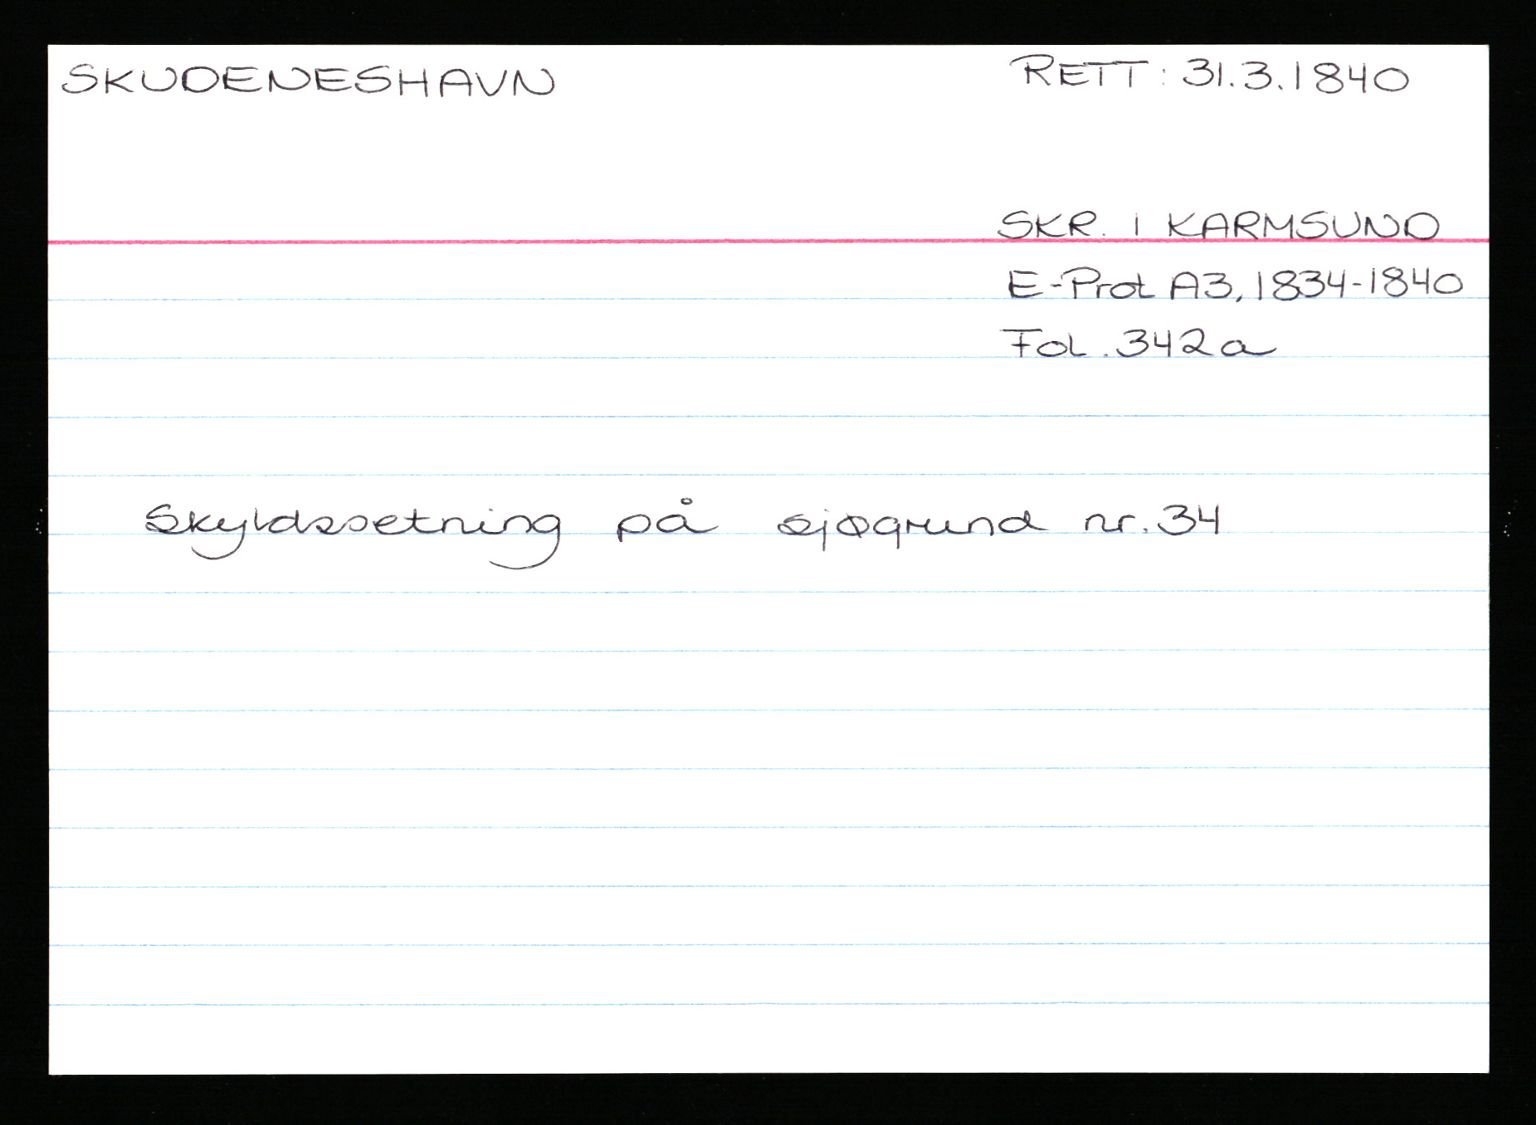 SKUDENESHAVN
RETT: 31.3.1840
SKR. I KARMSUND
E-Prot A3, 1834-1840
Fol. 342a
Skyldsetning på sjøgrund nr. 34